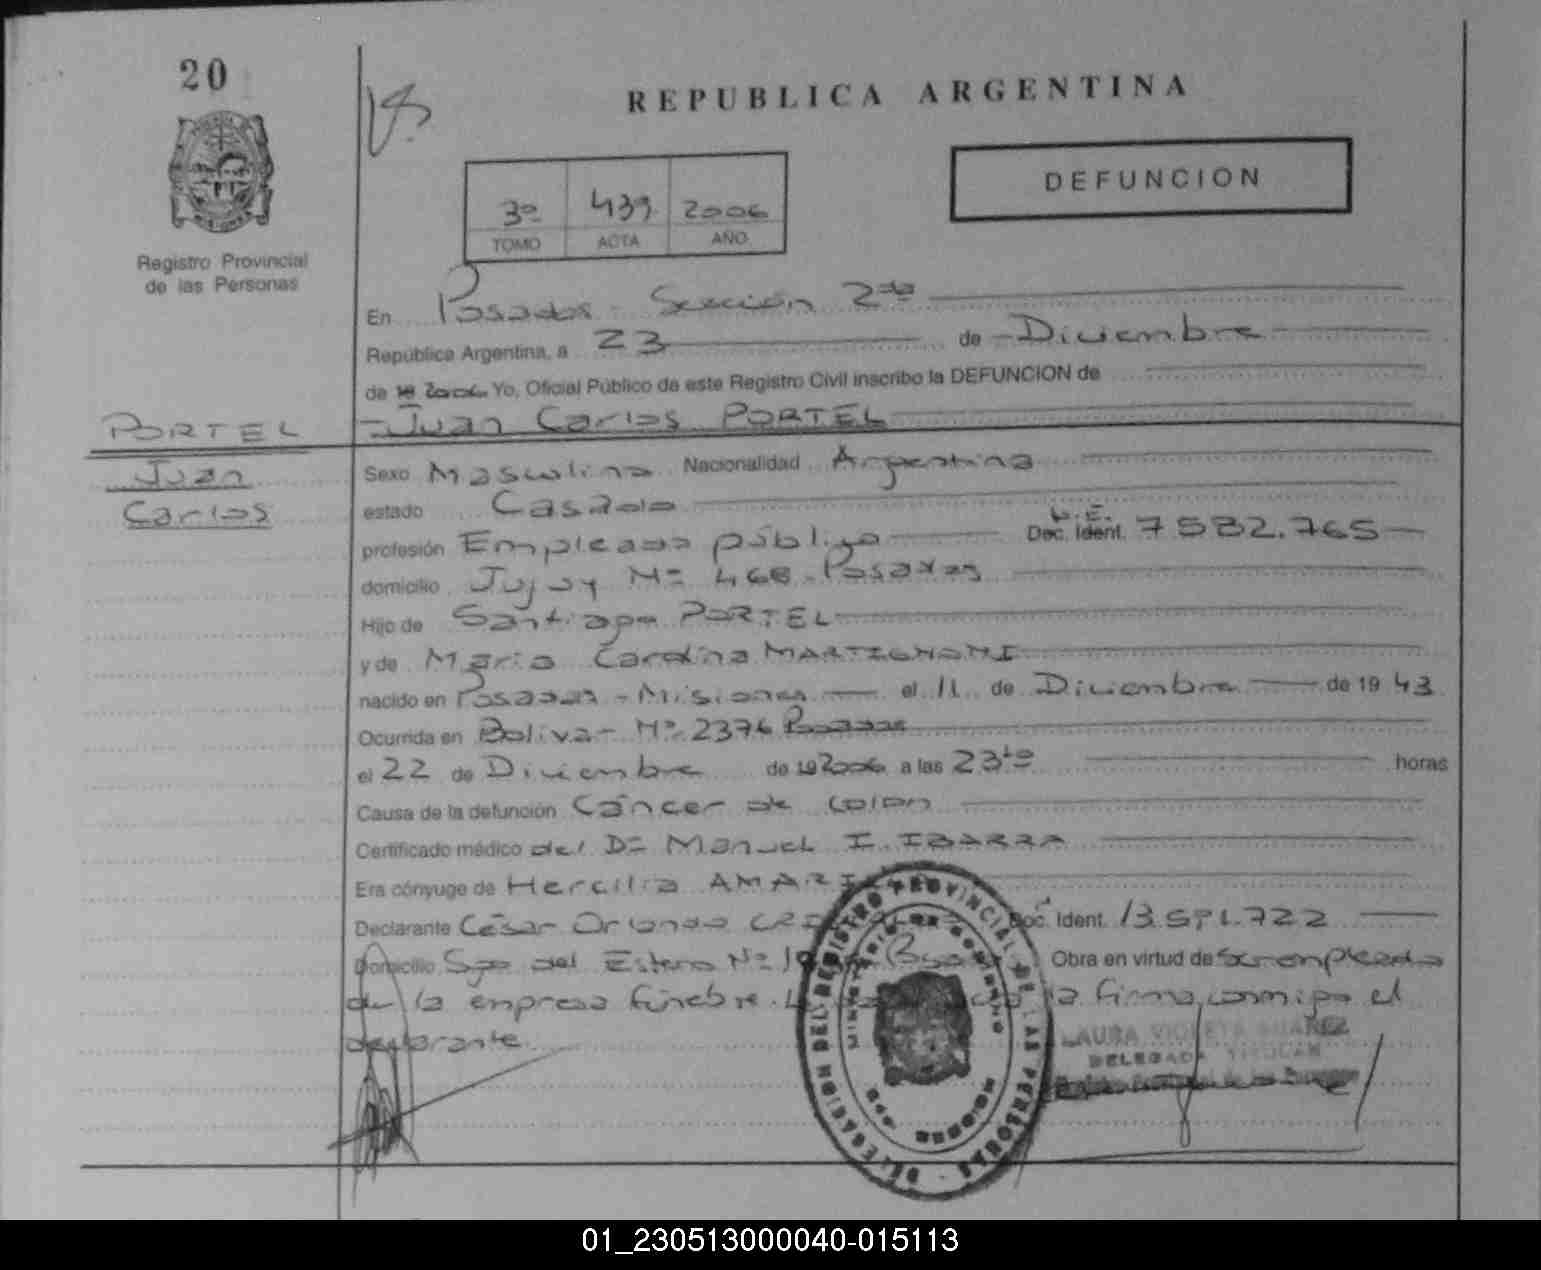 20
REPUBLICA ARGENTINA
DEFUNCION
3º 439 2006
TOMO ACTA AÑO
Registro Provincial
de las Personas
En Posadas - Sección 2da
República Argentina, a 23 de Diciembre
de 19 2006 Yo, Oficial Público de este Registro Civil inscribo la DEFUNCION de
PORTEL Juan Carlos PORTEL
Juan
Carlos
Sexo Masculino Nacionalidad Argentina
estado Casado
profesión Empleado público L.E. Doc. Ident. 7.582.765
domicilio Jujuy Nº 468 - Posadas
Hijo de Santiago PORTEL
y de María Carolina MARTIGNONI
nacido en Posadas - Misiones el 11 de Diciembre de 19 43
Ocurrida en Bolivar Nº 2376 Posadas
el 22 de Diciembre de 19 2006 a las 23 horas
Causa de la defunción Cáncer de colon
Certificado médico del Dr Manuel I. IBARRA
Era cónyuge de Hercilia
Declarante César Orlando Doc. Ident. 13.591.722
Domicilio Sgo del Estero Nº Obra en virtud de Ser empleado
de la empresa fúnebre. la firma conmigo el
declarante.
DELEGACION DEL REGISTRO PROVINCIAL DE LAS PERSONAS
MINISTERIO DE GOBIERNO
MISIONES
LAURA VIOLETA SUAREZ
DELEGADA TITULAR
01_230513000040-015113